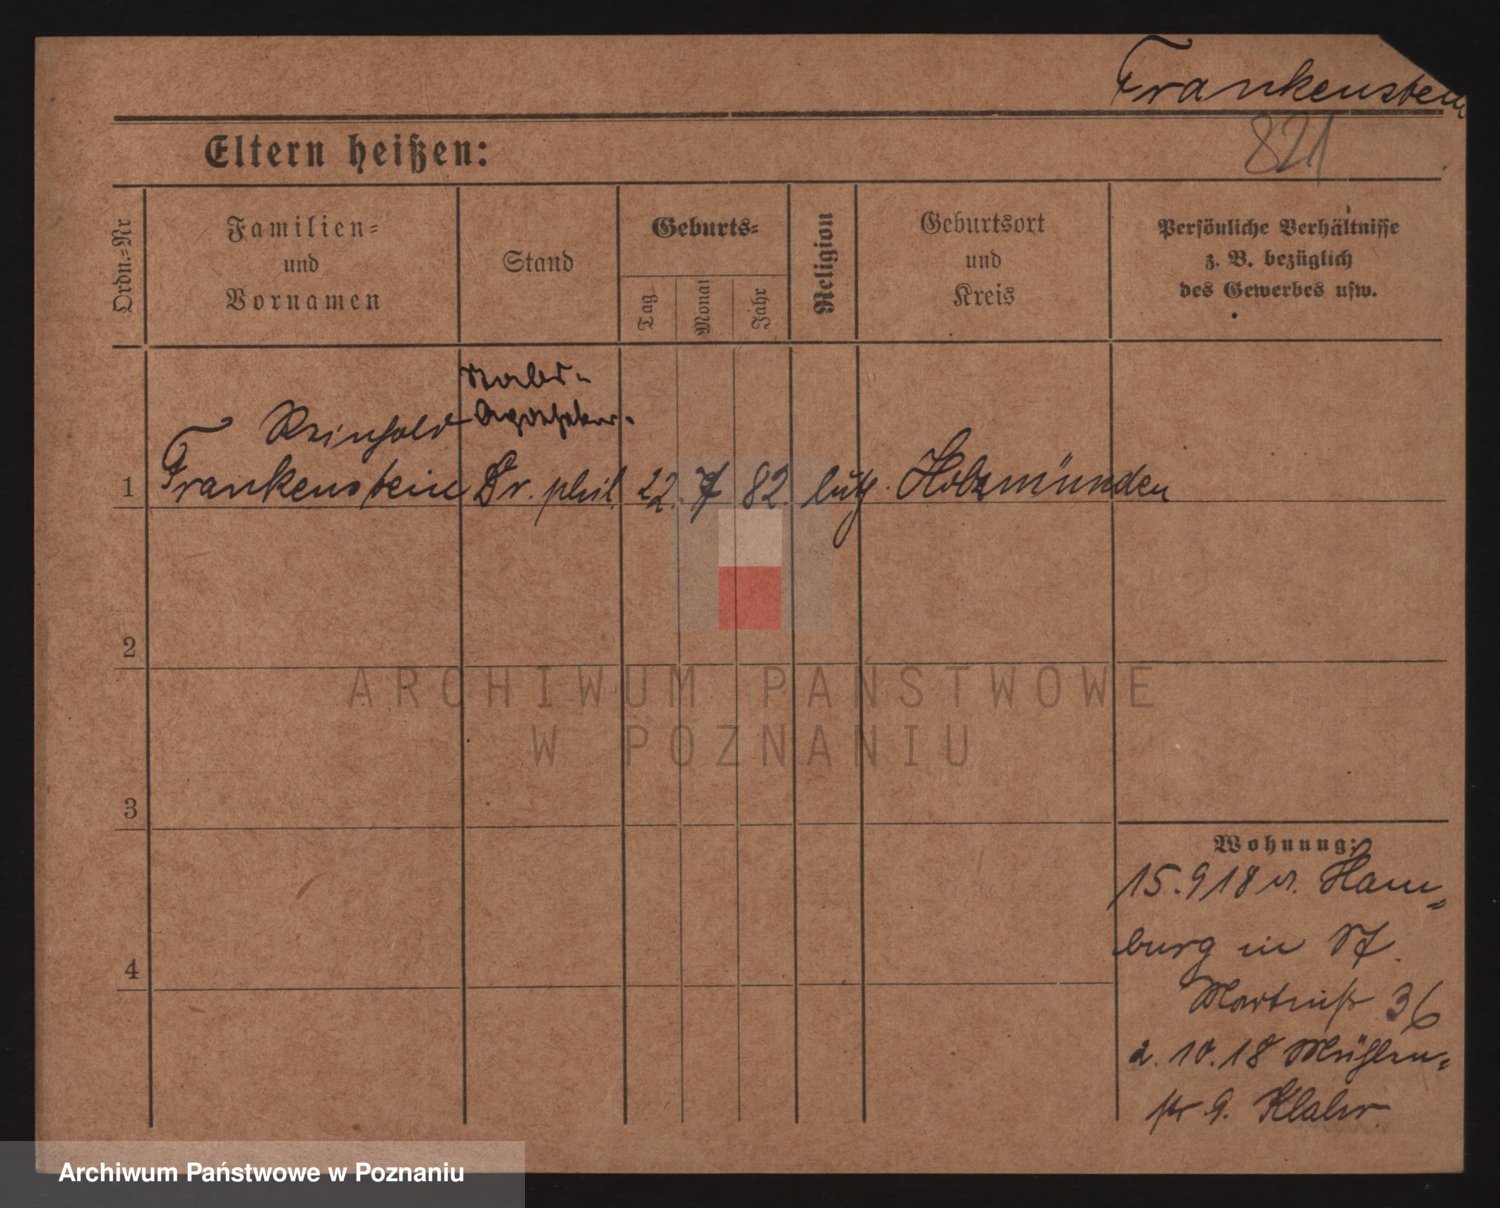 Frankenstein
821
Eltern heißen:
Ordn.=Nr
Familien=
und
Vornamen
Stand
Geburts=
Tag
Monat
Jahr
Religion
Geburtsort
und
Kreis
Persönliche Verhältnisse
z. B. bezüglich
des Gewerbes usw.
Reinhold
Apotheker.
1 Frankenstein Dr. phil. 22. 7 82. luth. Holzmünden
2
ARCHIWUM PAŃSTWOWE
W POZNANIU
3
Wohnung:
15.9 18 v. Ham=
burg in St.
Martinstr 36
4
2. 10. 18 Mühlen=
str 9.
Archiwum Państwowe w Poznaniu